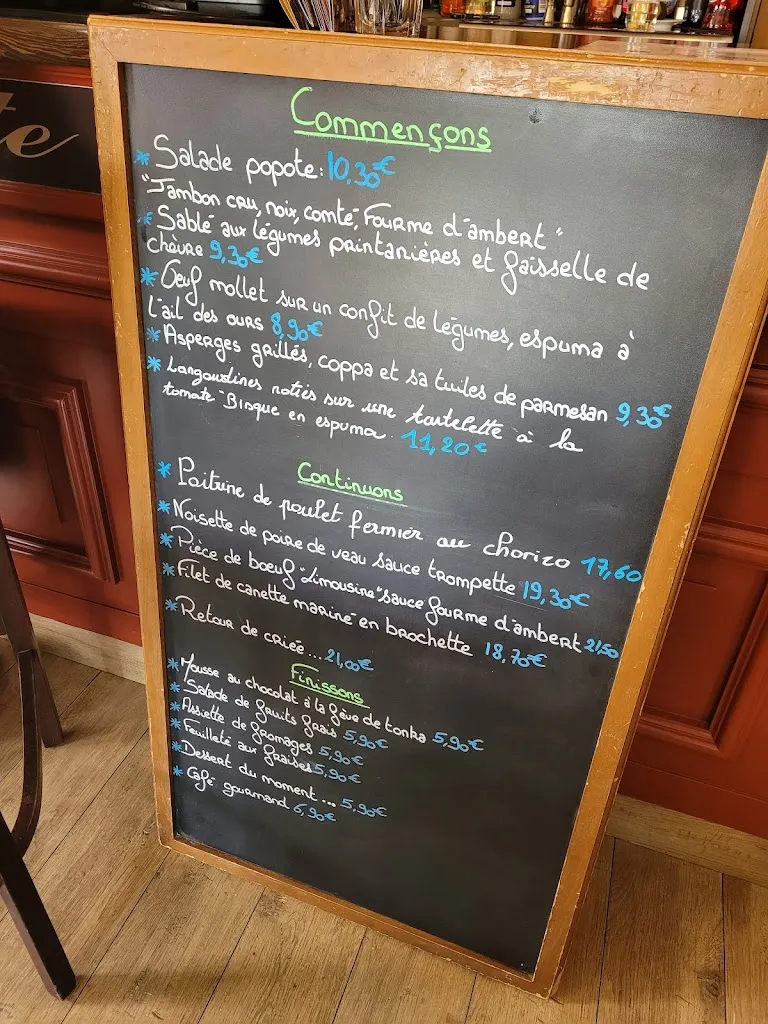 te
Commençons
* Salade popote: 10,30€
"Jambon cru, noix, comté, Fourme d'ambert"
* Sablé aux légumes printanières et faisselle de
chèvre 9,30€
* Oeuf mollet sur un confit de légumes, espuma à
l'ail des ours 8,90€
* Asperges grillés, coppa et sa tuiles de parmesan 9,30€
* Langoustines roties sur une tartelette à la
tomate - Bisque en espuma. 11,20€
Continuons
* Poitrine de poulet fermier au chorizo 17,60
* Noisette de poire de veau sauce trompette 19,30€
* Pièce de boeuf "Limousine" sauce fourme d'ambert 21.50
* Filet de canette mariné en brochette 18,70€
* Retour de criée ... 21,00€
Finissons
* Mousse au chocolat à la fève de tonka 5,90€
* Salade de fruits frais 5,90€
* Assiette de fromages 5,90€
* Feuilleté aux fraises 5,90€
* Dessert du moment ... 5,90€
* Café gourmand 6,90€